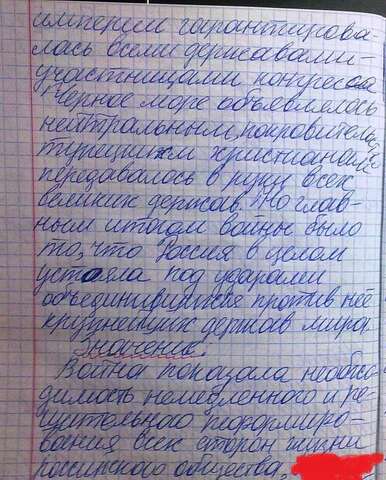 империи гарантирова-
лась всеми державами-
участницами конгресса
Черное море объявлялось
нейтральным, покровитель
турецкими христианами
передавалось в руки всех
великих держав. Но глав-
ным итогом войны было
то, что Россия в целом
устояла под ударами
объединившихся против неё
крупнейших держав мира
Значение:
Война показала необхо-
димость немедленного и ре-
шительного реформиро-
вания всех сторон жизни
российского общества.